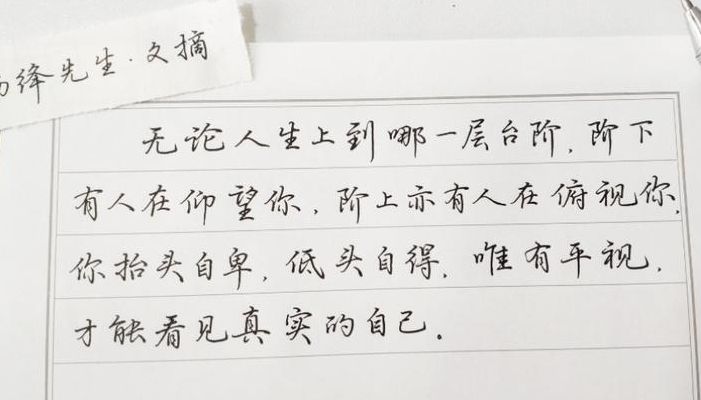 绛先生·文摘
无论人生上到哪一层台阶,阶下
有人在仰望你,阶上亦有人在俯视你,
你抬头自卑,低头自得,唯有平视,
才能看见真实的自己。